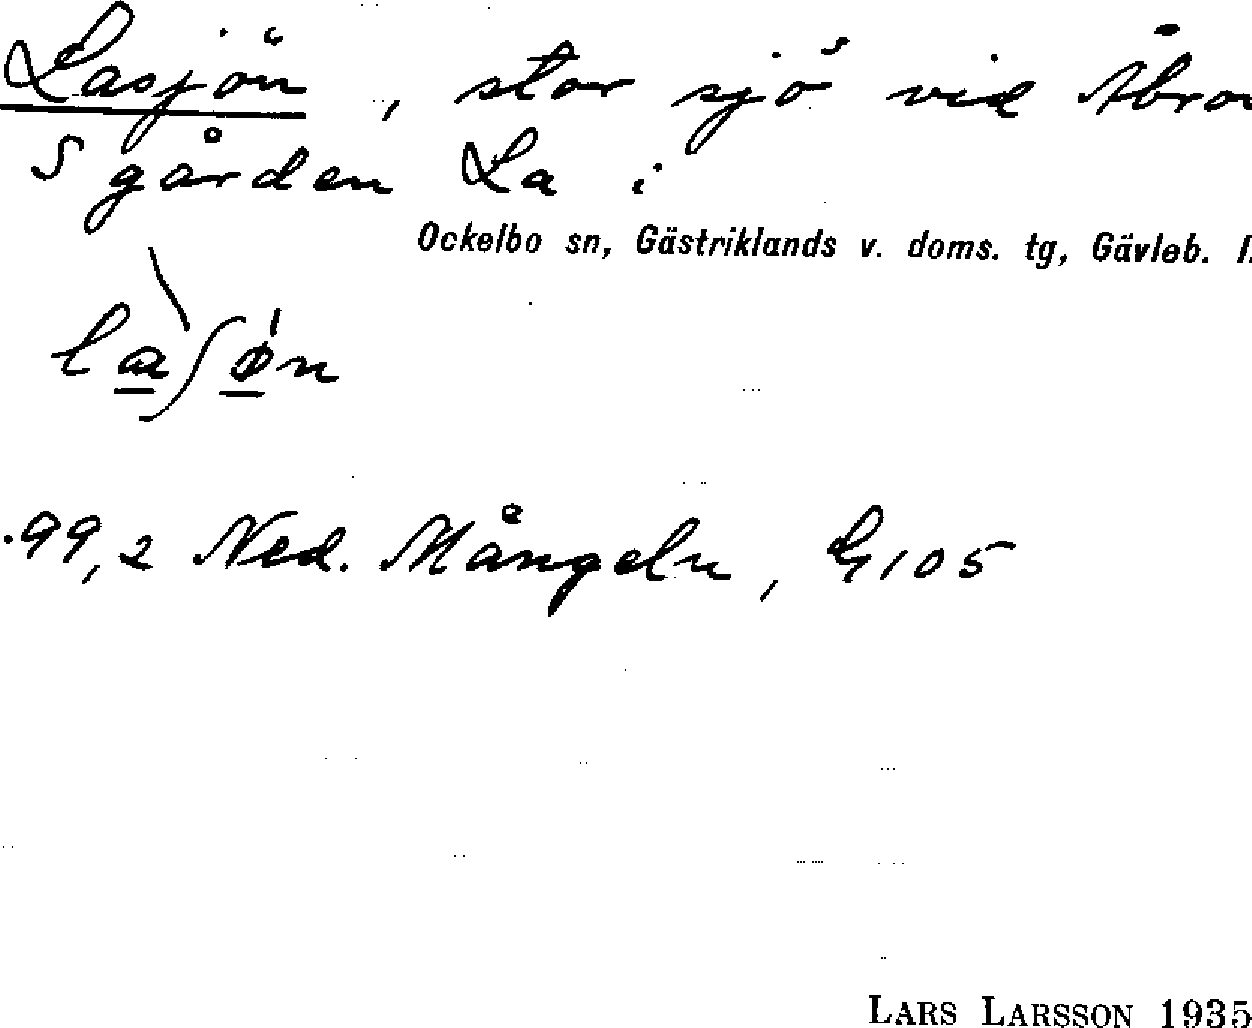 Lasjön, stor sjö vid Åbro
S gården La i
Ockelbo sn, Gästriklands v. doms. tg, Gävleb. l.
.99,2 Ned. Mångeln, G105
LARS LARSSON 1935